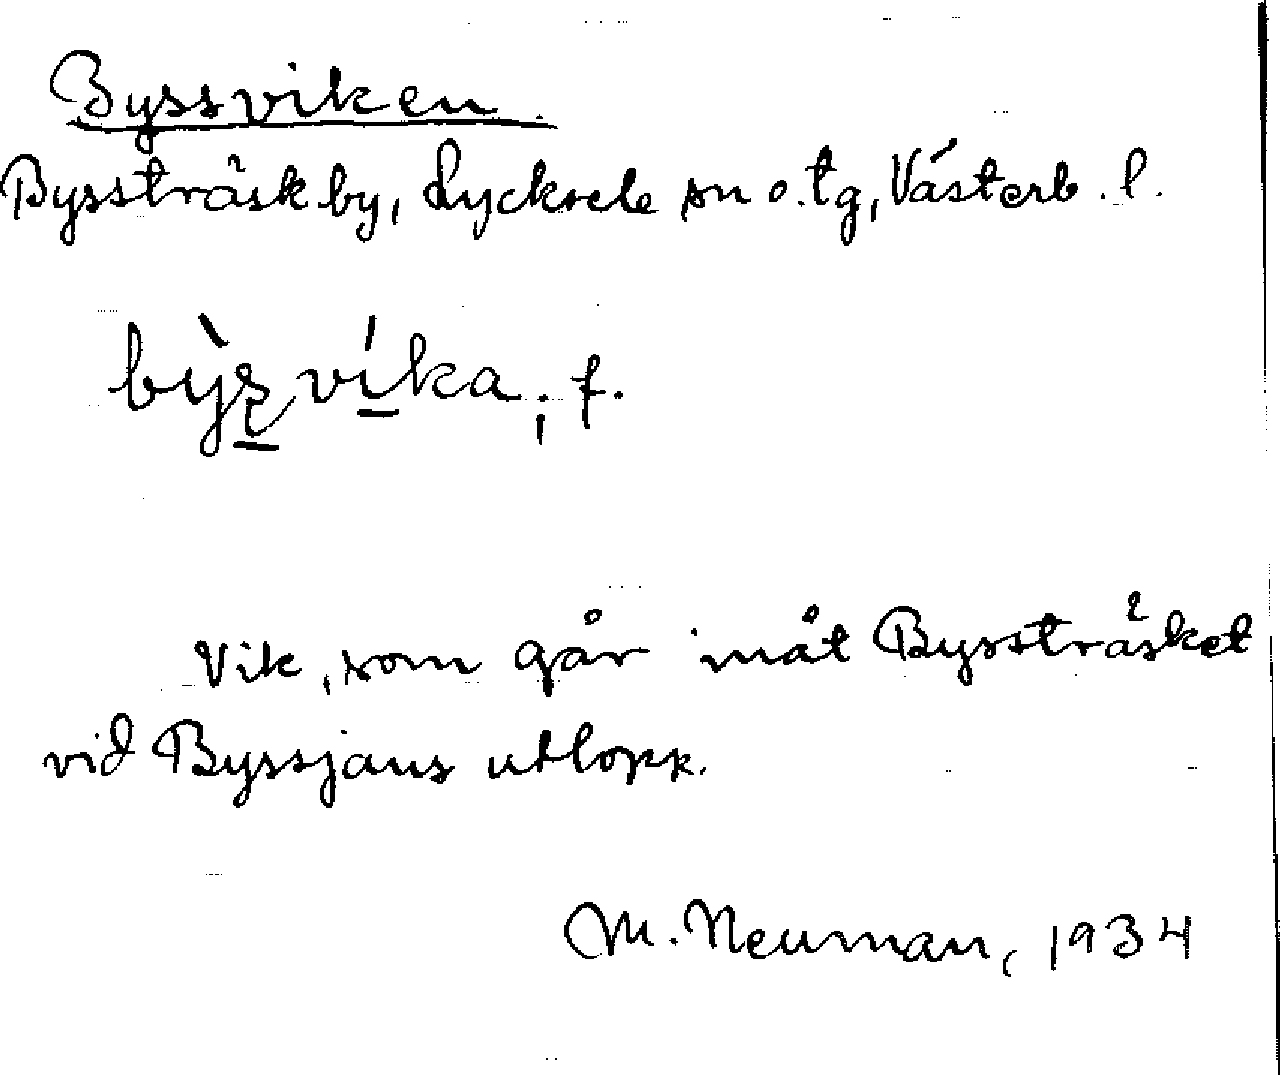 Byssviken
Bysträsk by, Lycksele sn o. tg, Västerb. l.
by̍s̠ví̠ka, f.
Vik, som går inåt Bysträsket
vid Byssjans utlopp.
M. Neuman, 1934